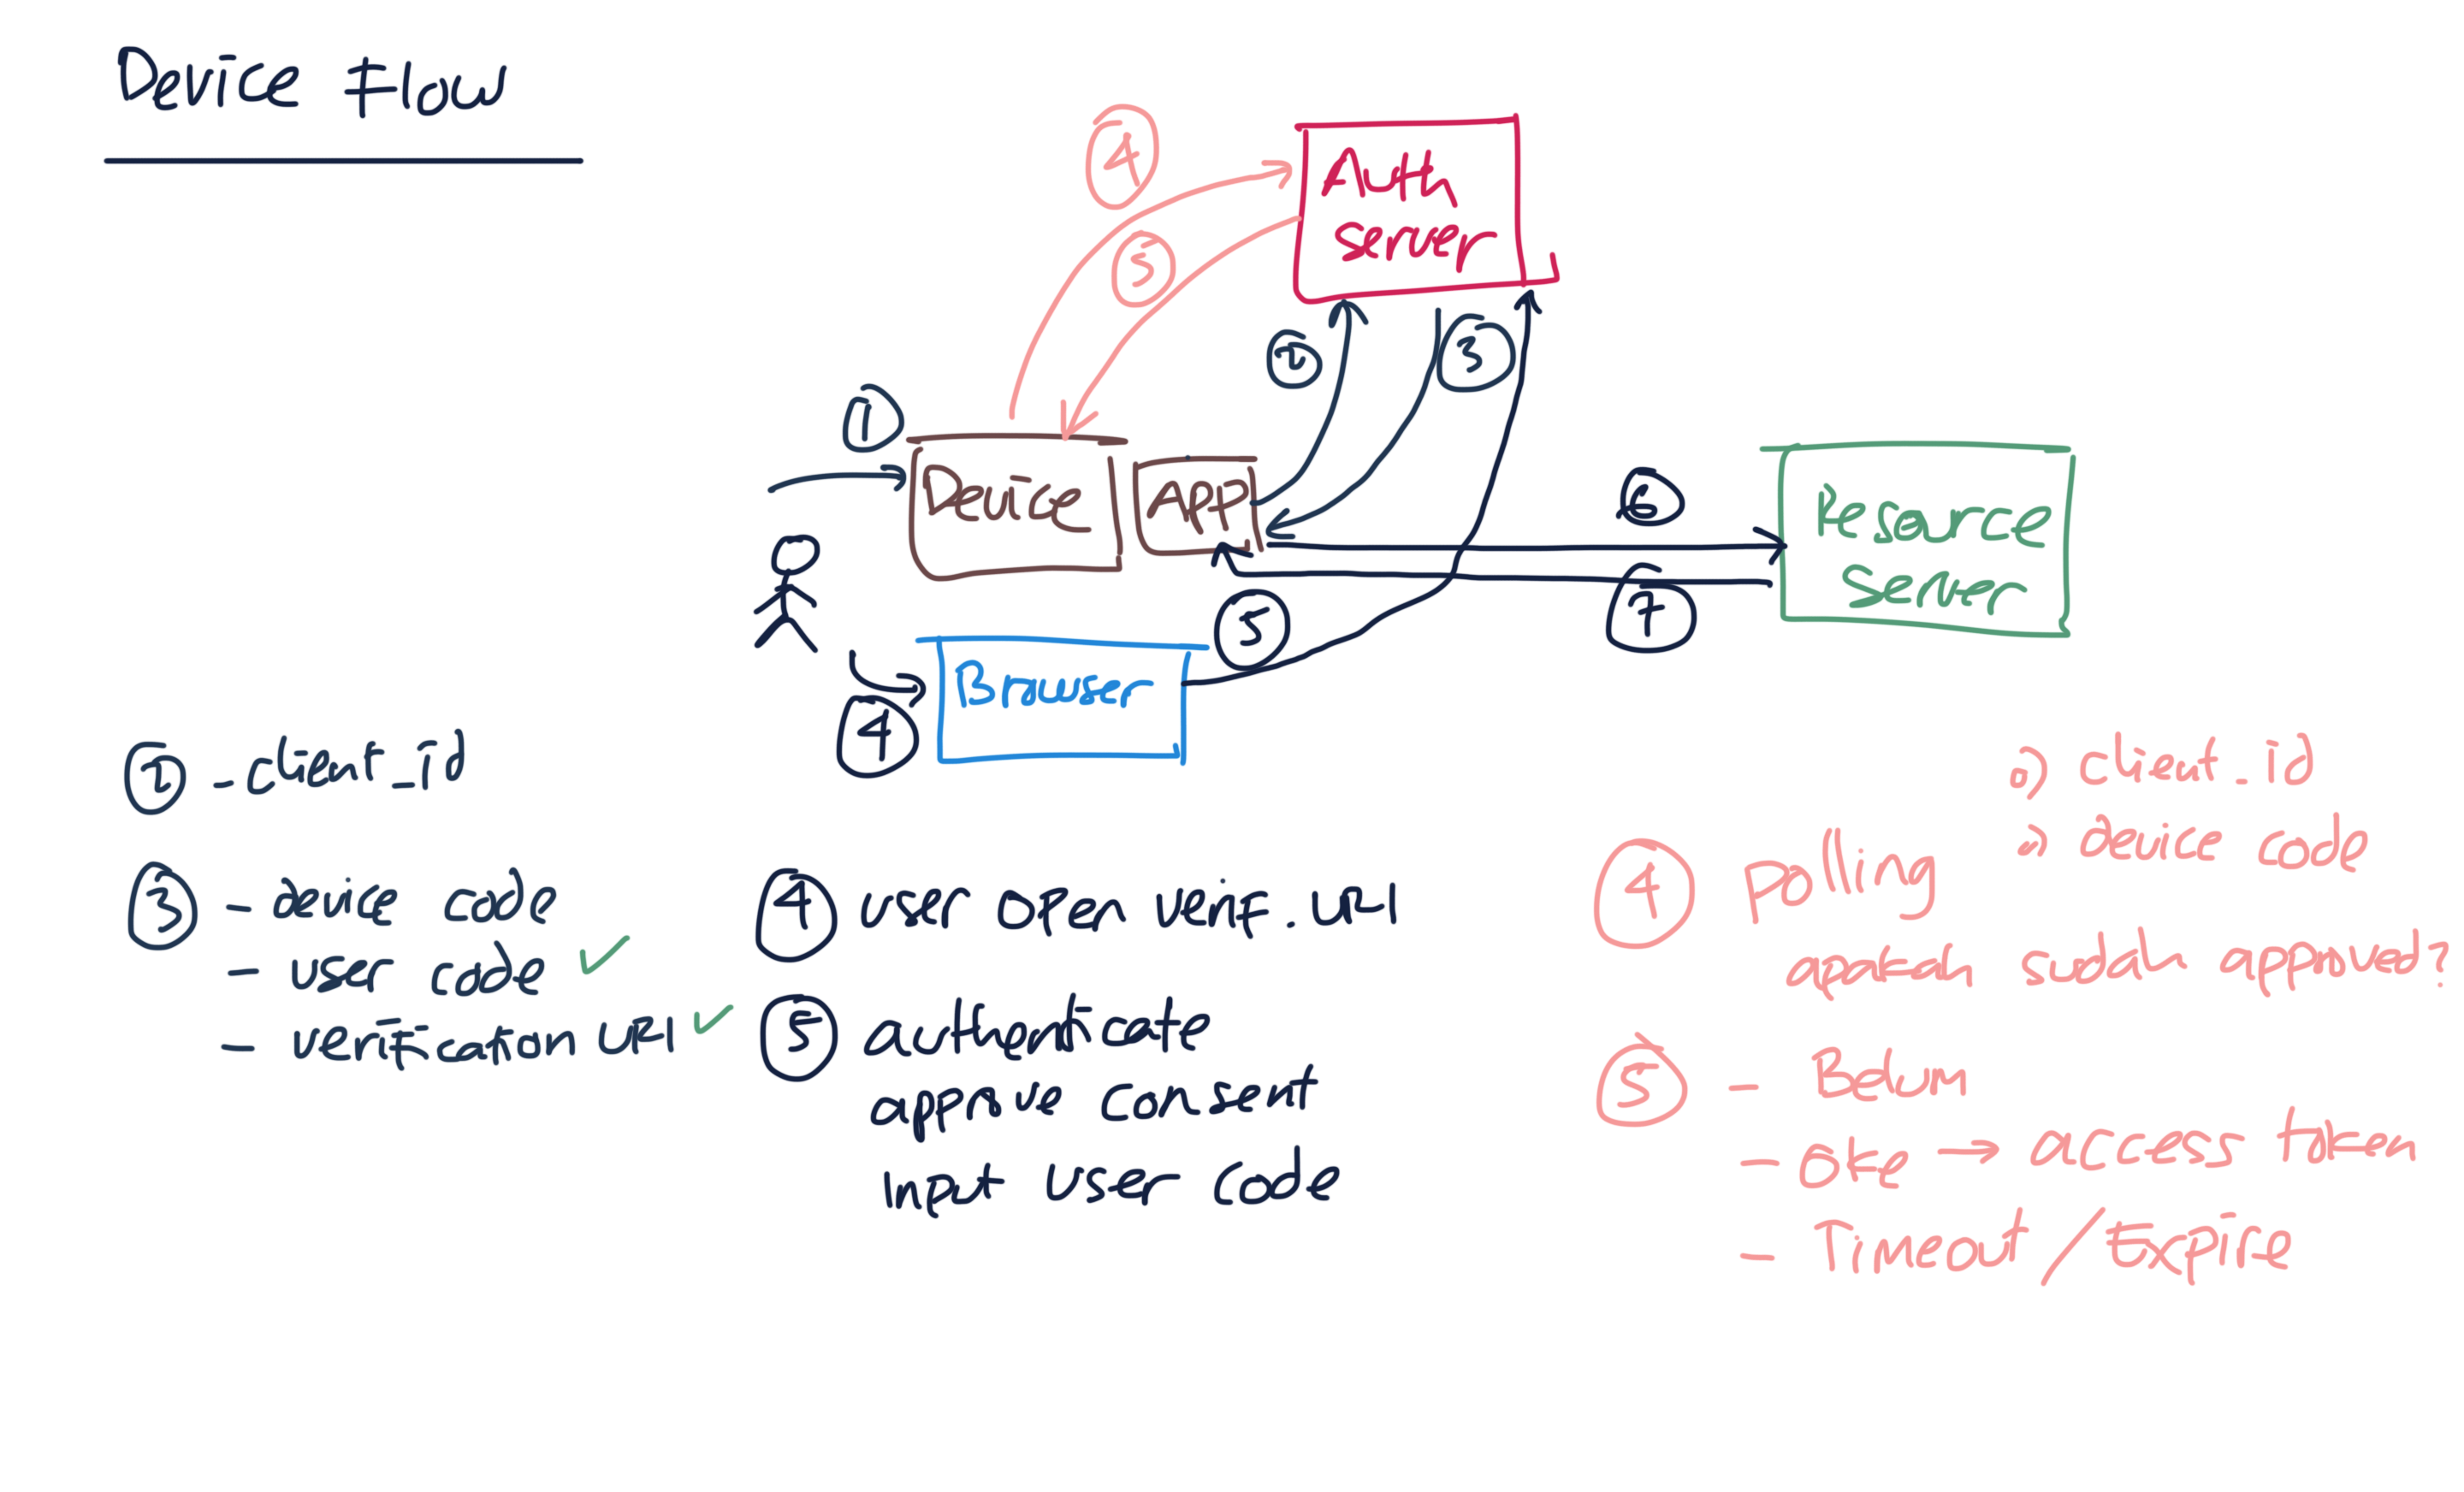 Device Flow
4
Auth
server
5
2
3
1
Device
APP
6
Resource
Server
7
5
Browser
4
2 - client_id
3 - device code
- user code ✓
- verification URI ✓
4 user open verif. URI
5 authenticate
approve consent
input user code
a) client_id
device code
4 polling
apakah sudah approved?
5 - Belum
- Oke → access token
- Timeout / Expire